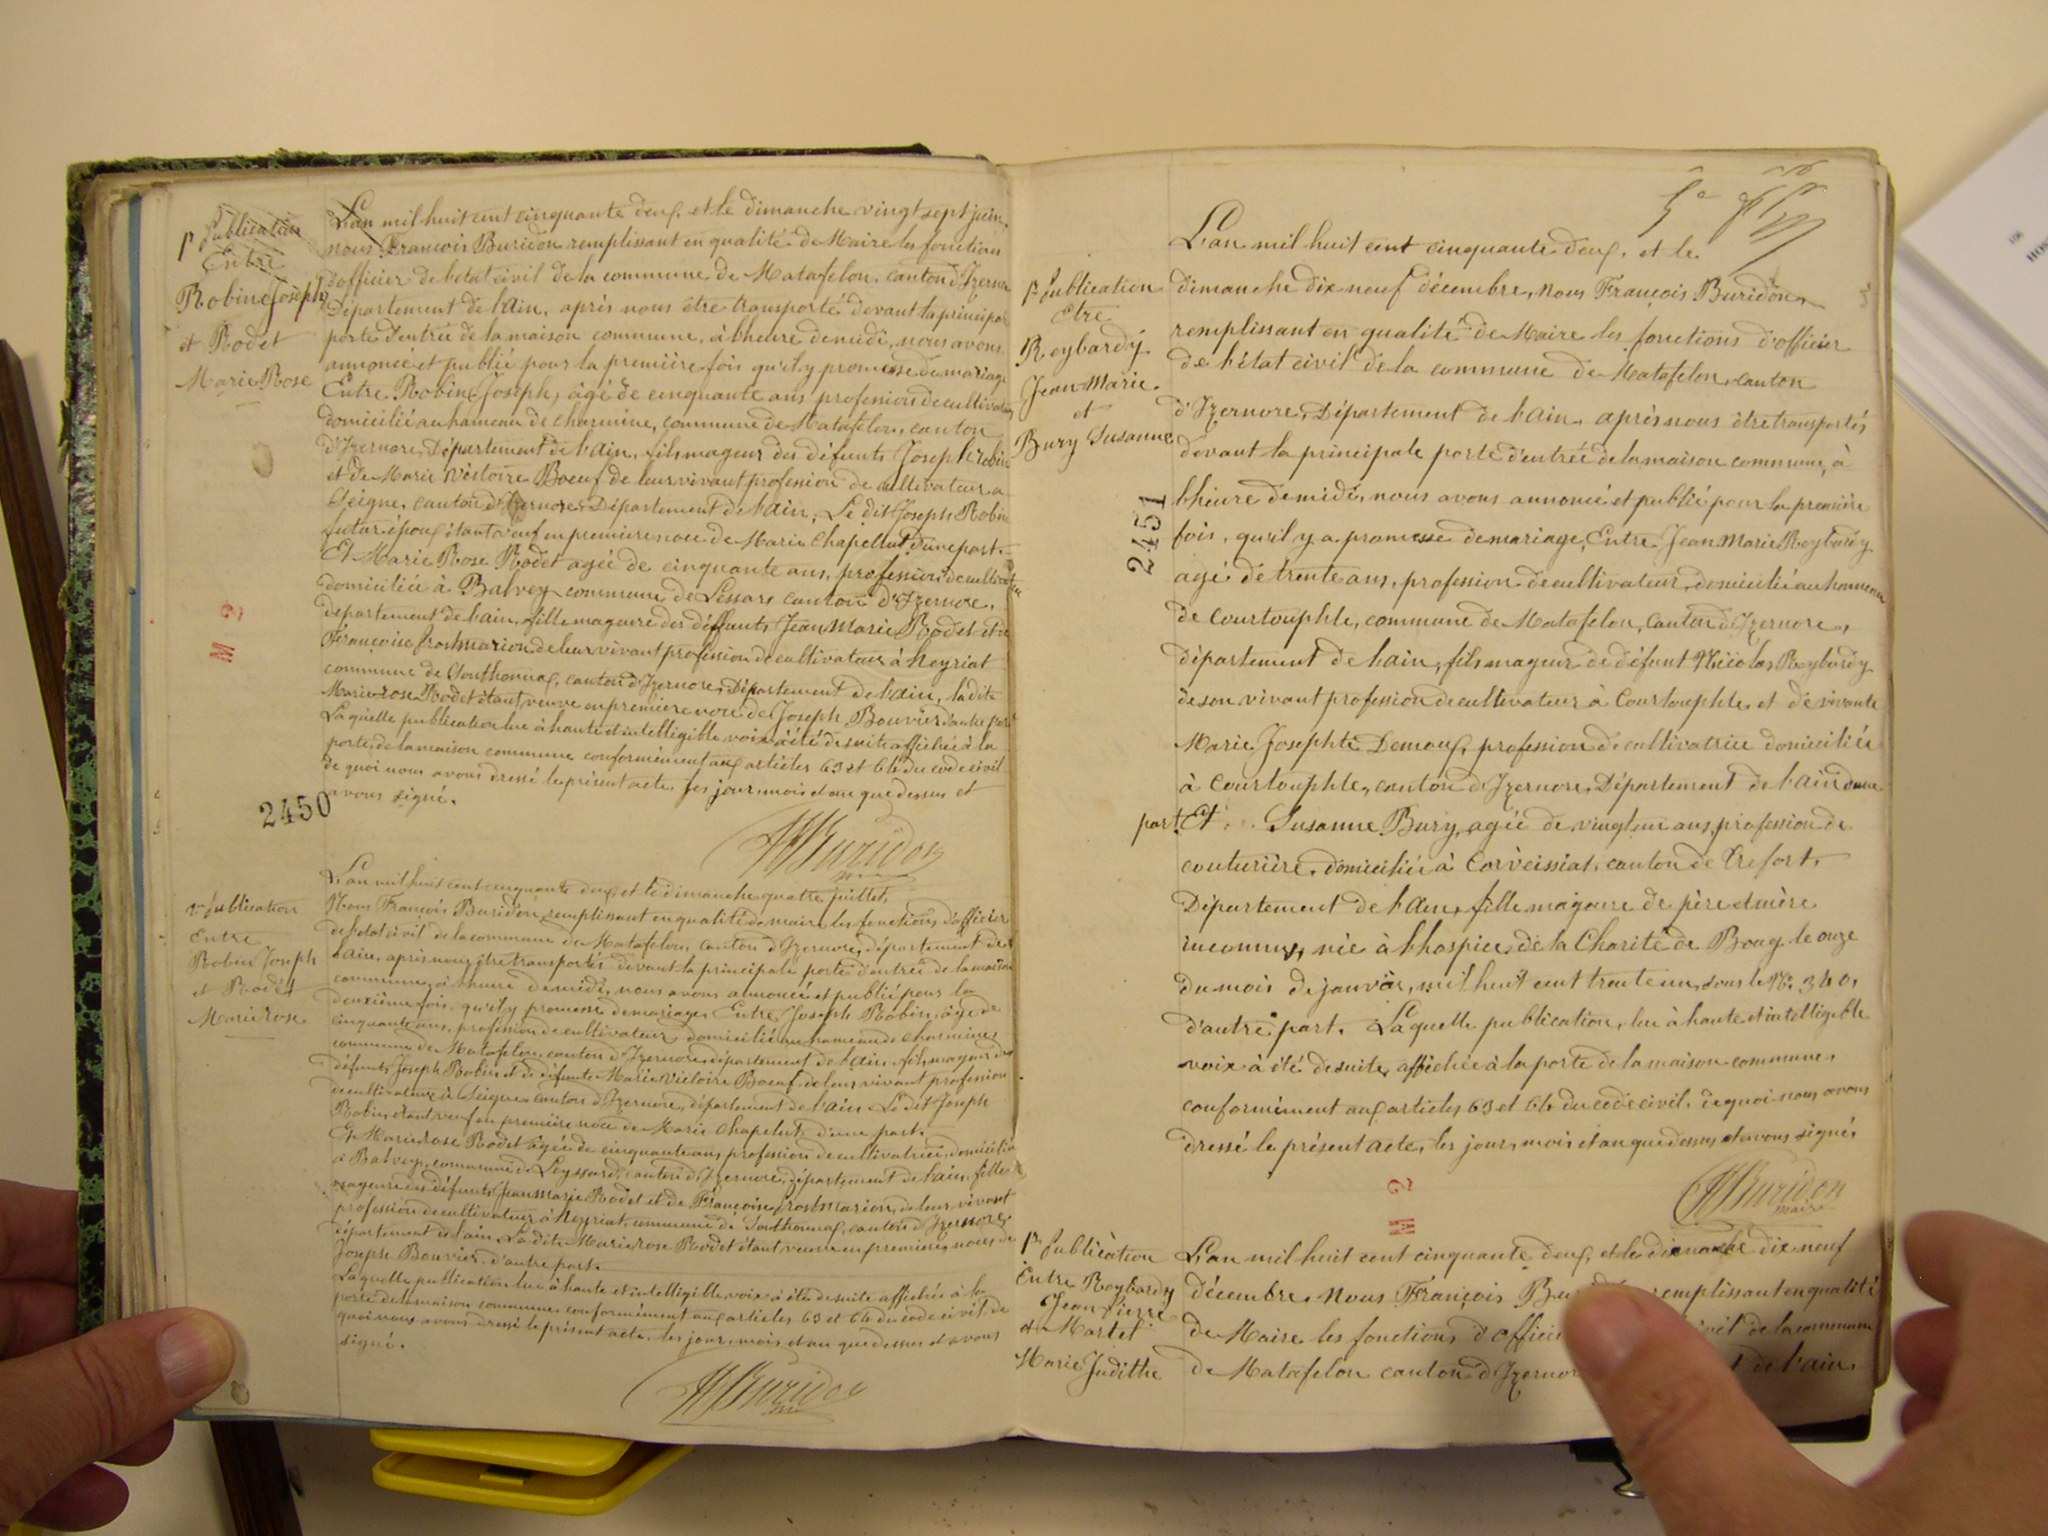 1e Publication
Entre
Robin Joseph
et Rodet
Marie Rose
L'an mil huit cent cinquante deux, et le dimanche vingt sept juin
nous François Buridon remplissant en qualité de Maire les fonction
d'officier de l'etat civil de la commune de Matafelon, canton d'Izernore
Département de l'ain, après nous être transporté devant la principale
porte d'entrée de la maison commune, à l'heure de midi, nous avons
annoncé et publié pour la première fois qu'il y promesse de mariage
Entre Robin Joseph, âgé de cinquante ans profession de cultivateur
domicilié au hameau de charmine, commune de Matafelon, canton
d'Izernore, Département de l'ain, fils mageur des défunts Joseph robin
et de Marie Victoire Boeuf de leur vivant profession de cultivateur a
Seigne, canton d'Izernore Département de l'ain, Le dit Joseph Robin
futur époux étant veuf en premiere noce de Marie Chapellut d'une part.
Et Marie Rose Rodet agée de cinquante ans, profession de cultivat
domiciliée à Balvey commune de Lessars canton d'Izernore,
departement de l'ain, fille mageure des deffunts Jean Marie Rodet et de
Françoise Prost marion de leur vivant profession de cultivateur à Neyriat
commune de Southonnax, canton d'Izernore, Département de l'ain, la dite
Marie rose Rodet étant veuve en premiere noce de Joseph Bouvier d'autre part
Laquelle publication lue à haute et intelligible voix a été de suite affichée à la
porte de la maison commune conformément aux articles 63 et 64 du code civil
de quoi nous avons dressé le présent acte, les jour, mois et an que dessus et
avons signé.
M 2
2450
Buridon
2e Publication
Entre
Robin Joseph
et Rodet
Marie rose
L'an mil huit cent cinquante deux et le dimanche quatre juillet,
Nous François Buridon remplissant en qualité de maire les fonctions d'officier
de l'etat civil de la commune de Matafelon, canton d'Izernore, département de
l'ain, après nous être transportés devant la principale porte d'entrée de la maison
commune, à l'heure de midi, nous avons annoncé et publié pour la
deuxième fois, qu'il y promesse de mariage, Entre Joseph Robin, âgé de
cinquante ans, profession de cultivateur domicilié au hameau de charmines
commune de Matafelon, canton d'Izernore, département de l'ain, fils mageur des
défunts Joseph Robin et de défunte Marie Victoire Boeuf, de leur vivant profession
de cultivateur à Seigne canton d'Izernore, département de l'ain Le dit Joseph
Robin étant veuf en premiere noce de Marie Chapelut, d'une part.
Et Marie rose Rodet agée de cinquante ans profession de cultivatrice, domiciliée
à Balvey, commune de Leyssard, canton d'Izernore, département de l'ain, fille
mageure des défunts Jean marie Rodet et de Françoise Prost marion, de leur vivant
profession de cultivateur à Neyriat, commune de Southonnax, canton d'Izernore,
département de l'ain La dite Marie rose Rodet étant veuve en premiere noces de
Joseph Bouvier d'autre part.
Laquelle publication lue à haute et intelligible voix a été de suite affichée à la
porte de la maison commune conformément aux articles 63 et 64 du code civil de
quoi nous avons dressé le présent acte, les jour, mois et an que dessus et avons
signé.
Buridon
L'an mil huit cent cinquante deux, et le
1e Publication
Etre
Reybardy
Jean Marie
et
Bury Susanne
dimanche dix neuf décembre, nous François Buridon,
remplissant en qualité de Maire les fonctions d'officier
de l'état civil de la commune de Matafelon, canton
d'Izernore, Département de l'ain, après nous être transportés
devant la principale porte d'entrée de la maison commune, à
l'heure de midi, nous avons annoncé et publié pour la première
fois, qu'il y a promesse de mariage, Entre Jean Marie Reybardy
agé de trente ans, profession de cultivateur, domicilié au hameau
de Courtouphle, commune de Matafelon, Canton d'Izernore,
département de l'ain, fils mageur de défunt Nicolas Reybardy
de son vivant profession de cultivateur à Courtouphle, et de vivante
Marie Josephte Demoux, profession de cultivatrice domiciliée
à Courtouphle, canton d'Izernore, Département de l'ain d'une
part. Et Susanne Bury, agée de vingt un ans, profession de
couturière, domiciliée à Corveissiat, canton de Trefort,
Département de l'ain, fille mageure de père et mère
inconnus, née à l'hospice de la Charité de Bourg le onze
du mois de janvier, mil huit cent trente un, sous le No. 340,
d'autre part. Laquelle publication, lue à haute et intelligible
voix à été de suite, affichée à la porte de la maison commune,
conformément aux articles 63 et 64 du code civil, de quoi nous avons
dressé le présent acte, les jour, mois et an que dessus et avons signé,
2451
M 2
Buridon
maire
1e Publication
Entre Reybardy
Jean Pierre
et Martet
Marie Judithe
L'an mil huit cent cinquante deux, et le dimanche dix neuf
décembre, Nous François remplissant en qualité
de Maire les fonctions d'offici civil de la commune
de Matafelon canton d'Izernor de l'ain,